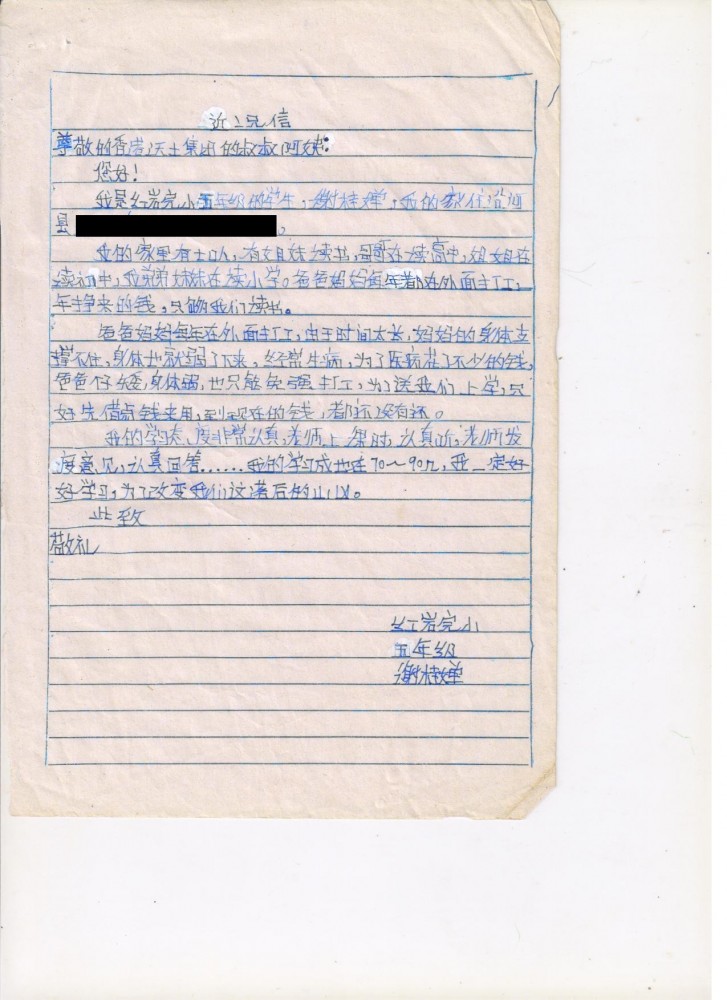 近况信
尊敬的香港沃土集团的叔叔阿姨:
您好!
我是红岩完小五年级的学生,谢桂婵,我的家住沿河
县
我的家里有七口人,有姐妹读书,哥哥在读高中,姐姐在
读初中,我和弟妹在读小学。爸爸妈妈每年都在外面打工,
年挣来的钱,只够我们读书。
爸爸妈妈每年在外面打工,由于时间太长,妈妈的身体支
撑不住,身体也就弱了下来,经常生病,为了医病花了不少的钱,
爸爸身体弱,也只能勉强打工,为了送我们上学,只
好先借点钱来用,到现在的钱,都还没有还。
我的学习态度非常认真,老师上课时,认真听,老师发
意见,认真回答……我的学习成也在70~90几,我一定好
好学习,为了改变我们这落后的山区。
此致
敬礼
红岩完小
五年级
谢桂婵